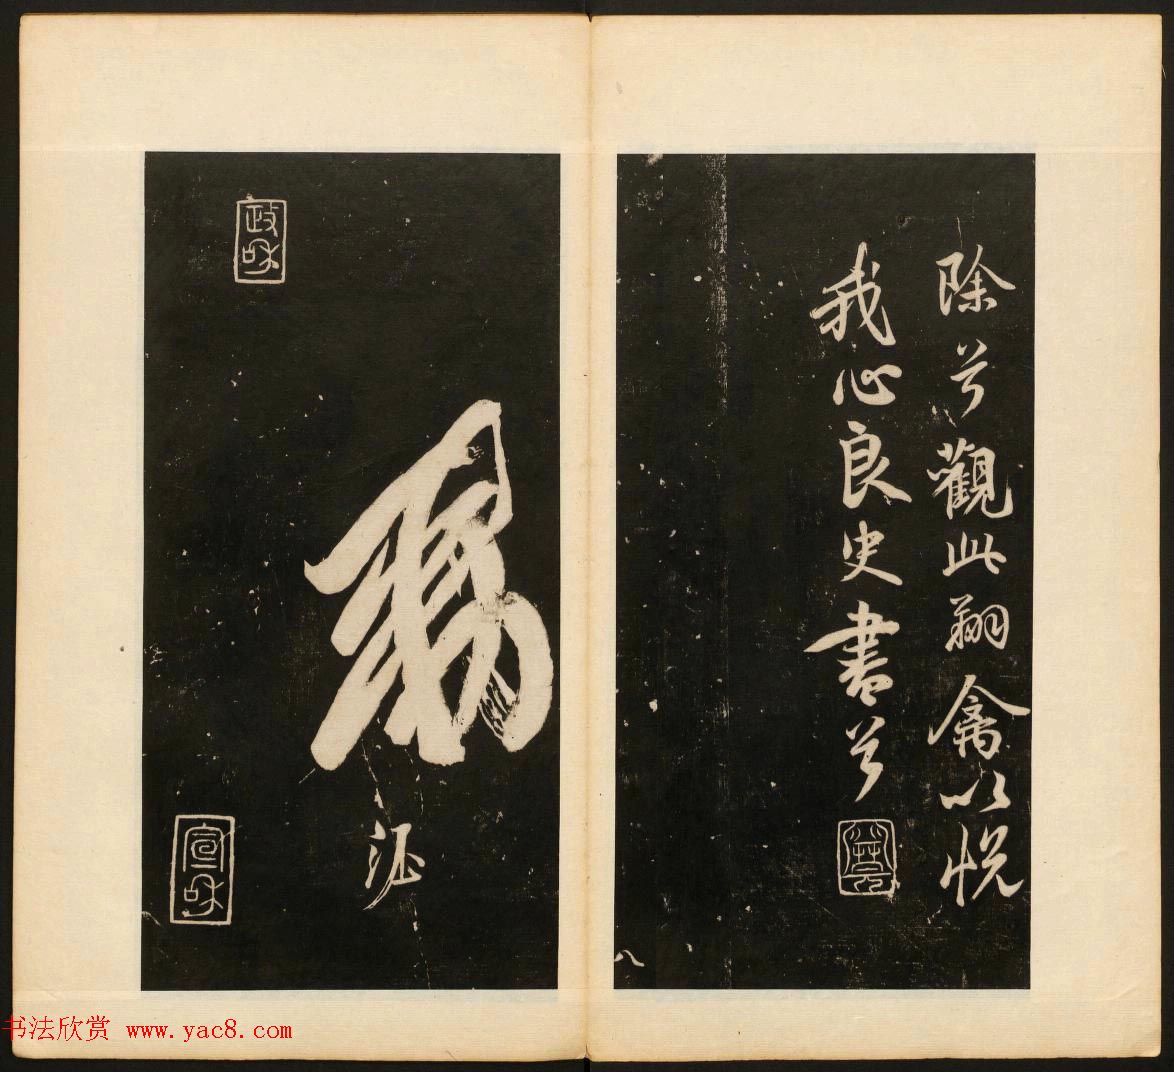 除兮觀此翔禽以悅
我心良史書兮
八
政和
宣和
书法欣赏 www.yac8.com